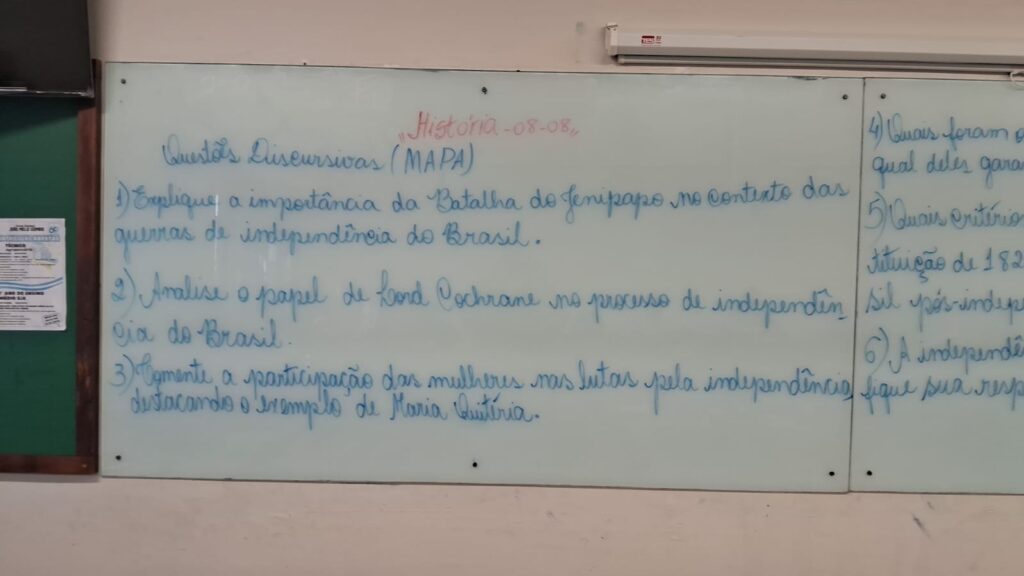 "História - 08-08"
Questões Discursivas (MAPA)
1) Explique a importância da Batalha do Jenipapo no contexto das
guerras de independência do Brasil.
2) Analise o papel de Lord Cochrane no processo de independên-
cia do Brasil.
3) Comente a participação das mulheres nas lutas pela independência,
destacando o exemplo de Maria Quitéria.
4) Quais foram o
qual deles garan
5) Quais critérios
tituição de 182
sil pós-indepe
6) A independên
fique sua resp
TÉCNICO